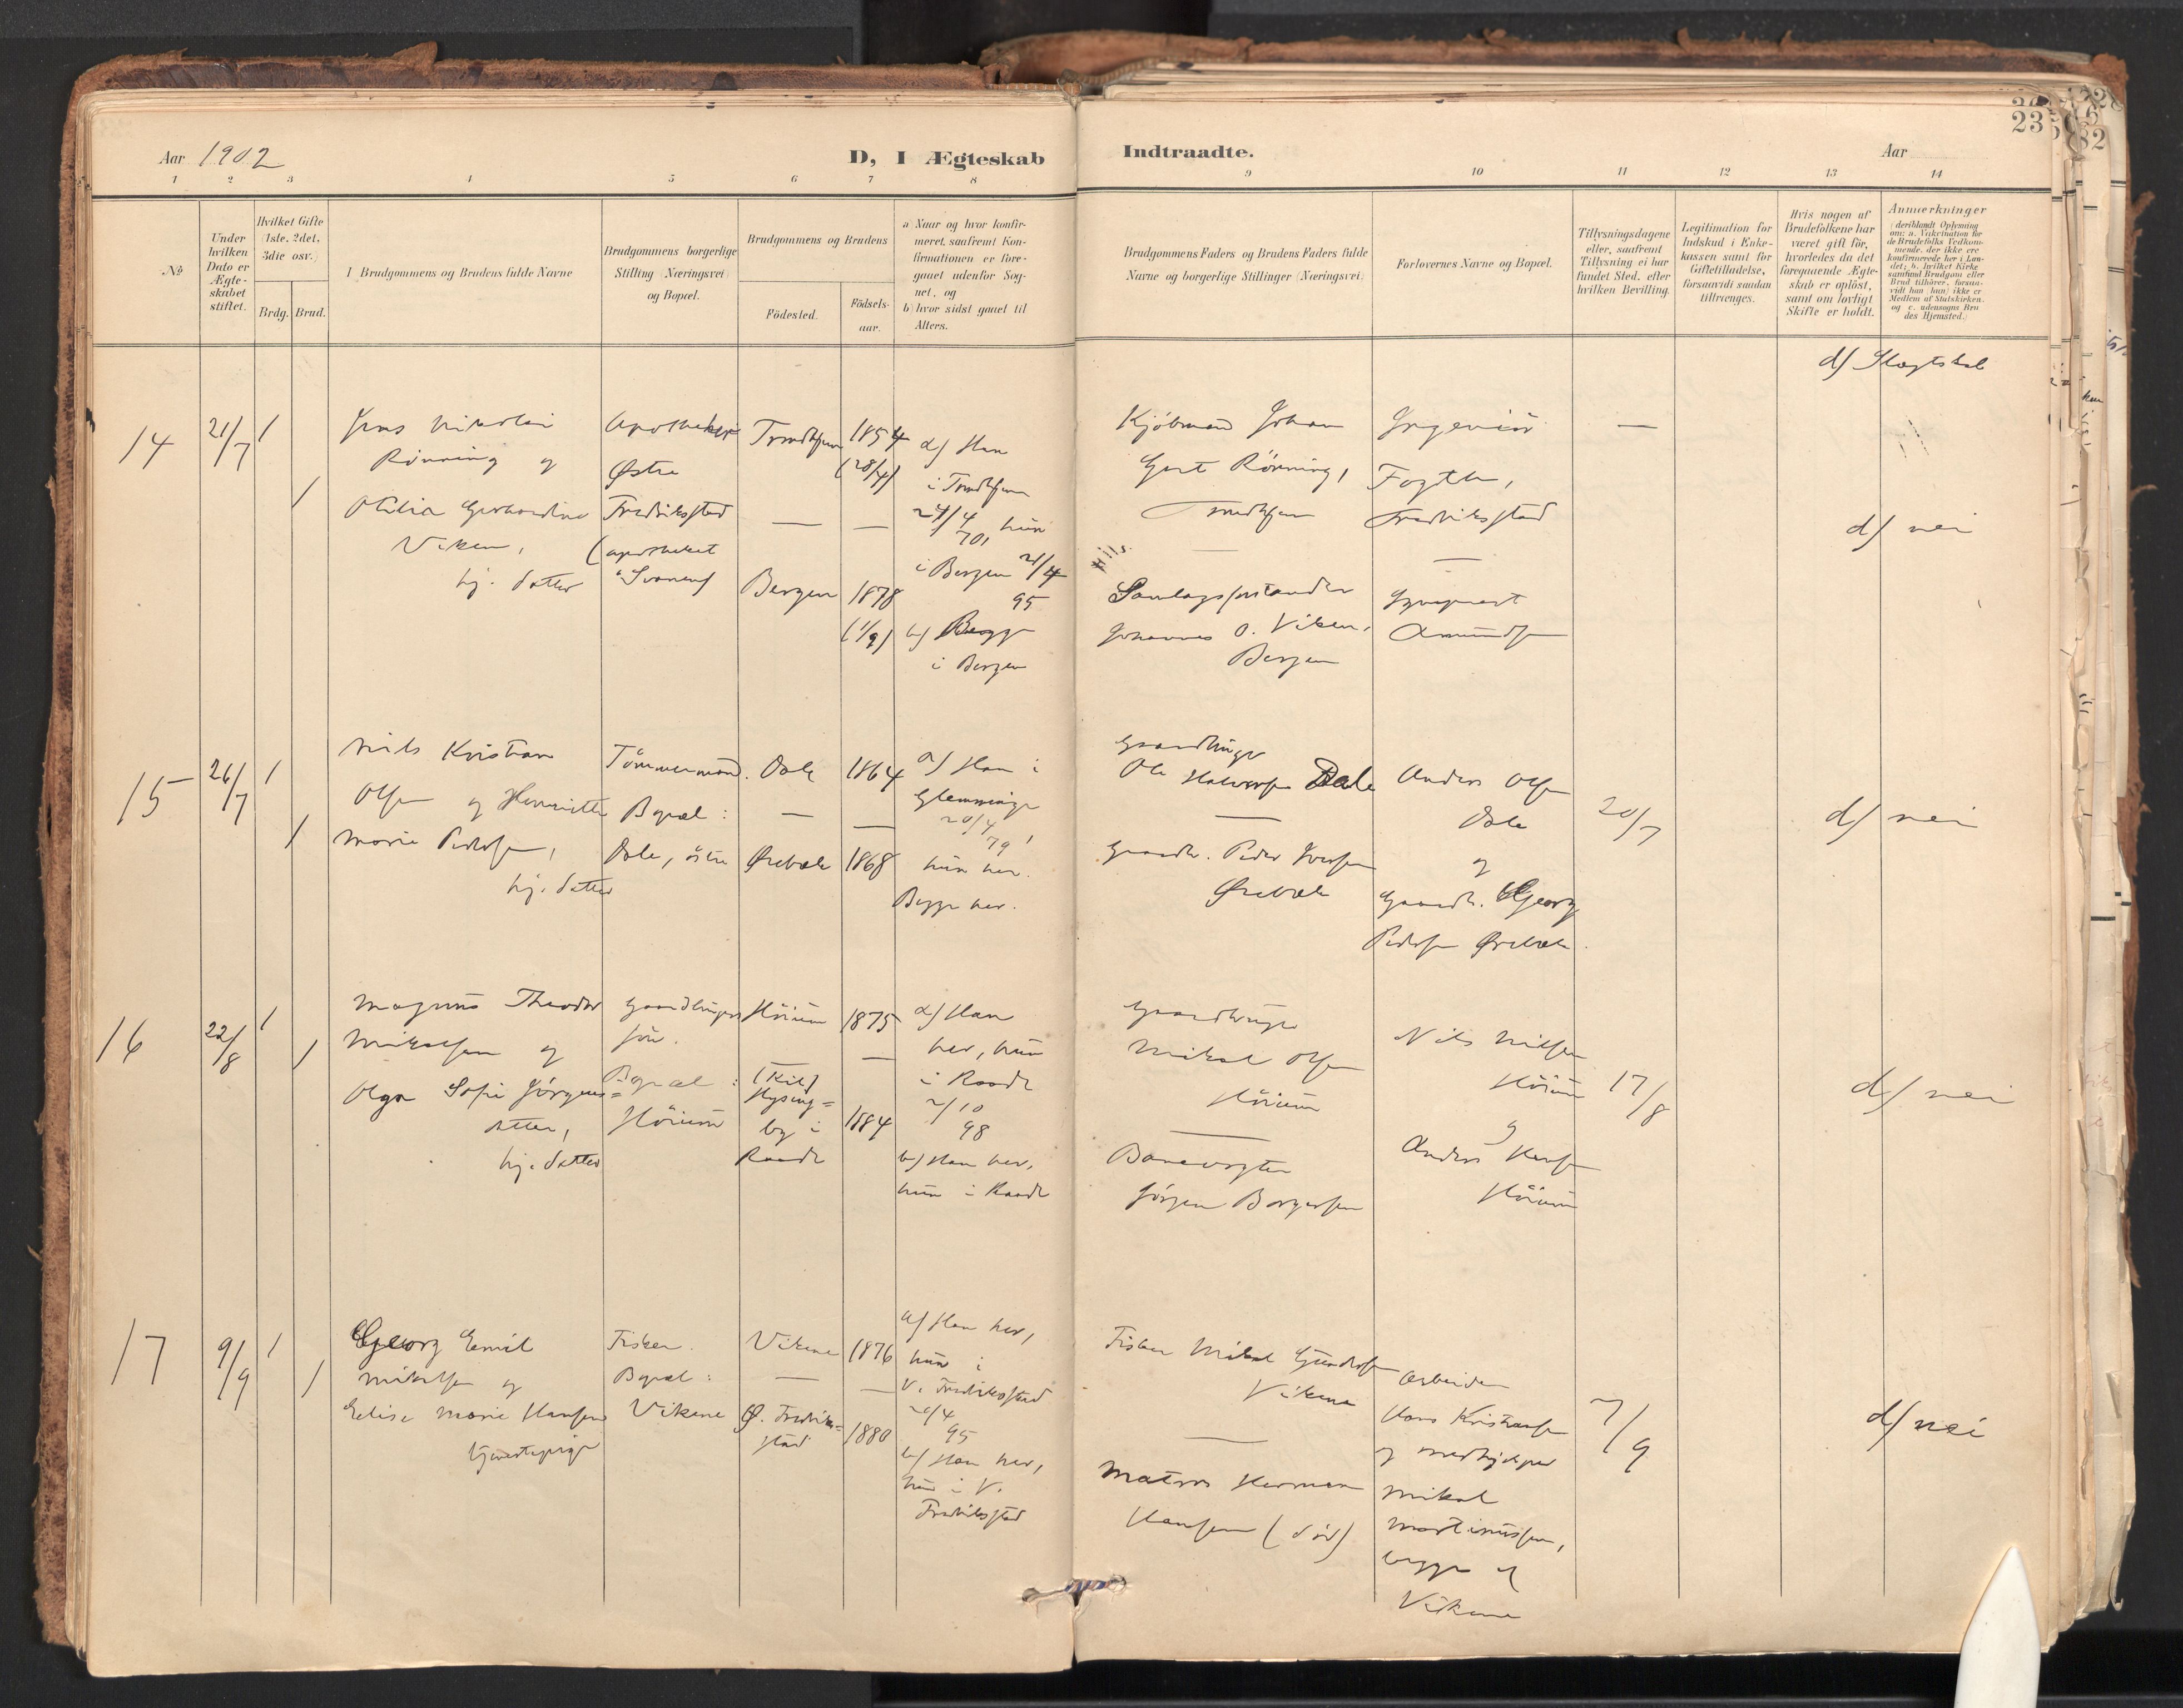 Aar 1902
D, I Ægteskab
Indtraadte.
Aar
23
1 2 3 4 5 6 7 8
9 10 11 12 13 14
No
Under
hvilken
Dato er
Ægte-
skabet
stiftet.
Hvilket Gifte
(1ste, 2det,
3die osv.)
Brdg. Brud.
I Brudgommens og Brudens fulde Navne
Brudgommens borgerlige
Stilling (Næringsvei)
og Bopæl.
Brudgommens og Brudens
Födested.
Födsels-
aar.
a Naar og hvor konfir-
meret, saafremt Kon-
firmationen er fore-
gaaet udenfor Sog-
net, og
b) hvor sidst gaaet til
Alters.
Brudgommens Faders og Brudens Faders fulde
Navne og borgerlige Stillinger (Næringsvei)
Forlovernes Navne og Bopæl.
Tillysningsdagene
eller, saafremt
Tillysning ei har
fundet Sted, efter
hvilken Bevilling.
Legitimation for
Indskud i Enke-
kassen samt for
Giftetilladelse,
forsaavidt saadan
tiltrænges.
Hvis nogen af
Brudefolkene har
været gift för,
hvorledes da det
foregaaende Ægte-
skab er oplöst,
samt om lovligt
Skifte er holdt.
Anmærkninger
(deriblandt Oplysning
om: a. Vakcination for
de Brudefolks Vedkom-
mende, der ikke ere
konfirmerede her i Lan-
det; b. hvilket Kirke-
samfund Brudgom eller
Brud tilhörer, forsaa-
vidt han (hun) ikke er
Medlem af Statskirken,
og c. udensogns Bru-
des Hjemsted.)
d) Slægtskab
14
21/7
1
1
Jens Nikolai
Rönning og
Otilia Gerhardine
Viken,
hj. datter
Apotheker
Østre
Fredriksstad
(apotheket
"Svanen")
Trondhjem
Bergen
1854
(28/4)
1878
(1/9)
a) Han
i Trondhjem
24/4
70, hun
i Bergen 21/4
95
b) Begge
i Bergen
Kjöbmand Johan
Gert Rönning,
Trondhjem
Samlagsforstander
Johannes O. Viken,
Bergen
Ingeniör
Fogth,
Fredriksstad
Amundsen
d) nei
15
26/7
1
1
Nils Kristian
Olsen og Henriette
Marie Pedersen,
hj. datter
Tömmermand.
Bopæl:
Dale, östre
Dale
Ørebæk
1864
1868
a) Han i
Glemminge
20/4
79,
hun her.
Begge her.
Gaardbruger
Ole Halvorsen Dale
Gaardb. Peder Iversen
Ørebæk
Anders Olsen
Dale
og
Gaardb. Georg
Pedersen Ørebæk.
20/7
d) nei
16
22/8
1
1
Magnus Theodor
Mikalsen og
Olga Sofie Jörgens=
datter,
hj. datter
Gaardbrugers
sön.
Bopæl:
Höium
Höium
(Kil)
Hysing=
by i
Raade
1875
1884
a) Han
her, hun
i Raade
2/10
98
b) Han her,
hun i Raade
Gaardbruger
Mikal Olsen
Höium
Banevogter
Jörgen Borgersen
Nils Nilsen
Höium
og
Anders Hansen
Höium
17/8
d) nei
17
9/9
1
1
Georg Emil
Mikalsen og
Elise Marie Hansen
tjenestepige
Fisker.
Bopæl:
Vikene
Vikene
Ø. Fredriks=
stad
1876
1880
a) Han her,
hun i
V. Fredriksstad
20/4
95
b) Han her,
hun i V.
Fredriksstad
Fisker Mikal Gundersen
Vikene
Matros Herman
Hansen (död)
Arbeider
Hans Kristiansen
og
Mikal
Martinussen,
begge af
Vikene
7/9
d) nei